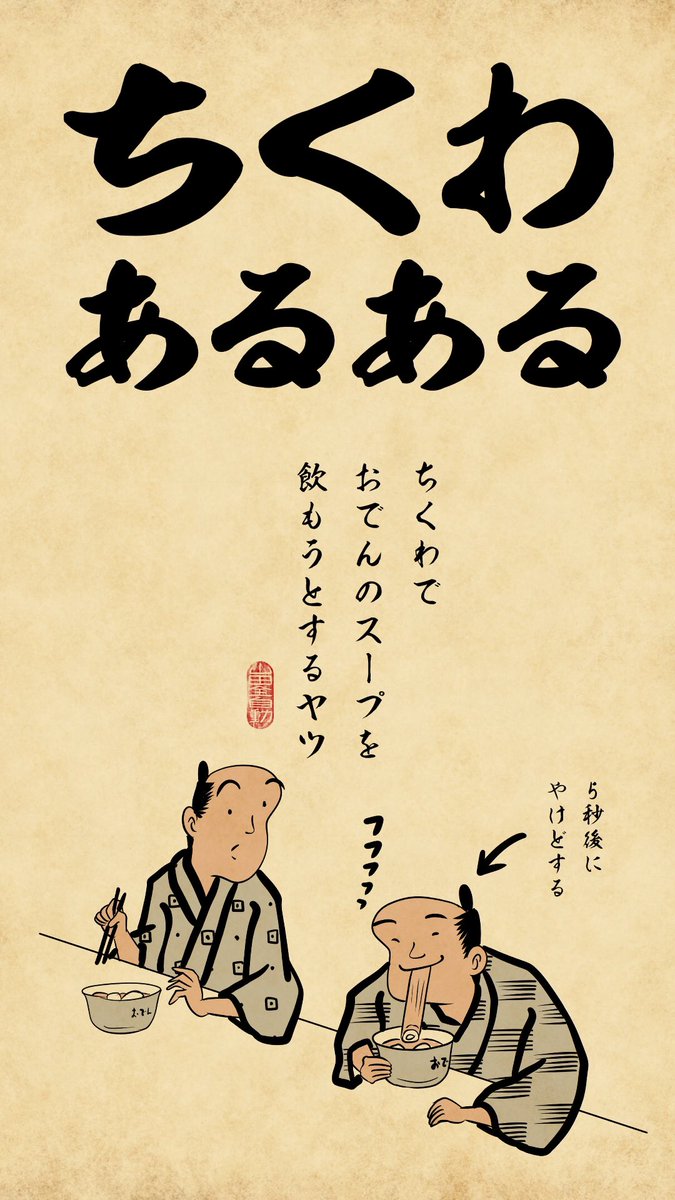 ちくわ
あるある
ちくわで
おでんのスープを
飲もうとするヤツ
5秒後に
やけどする
フフフフっ
おでん
おで